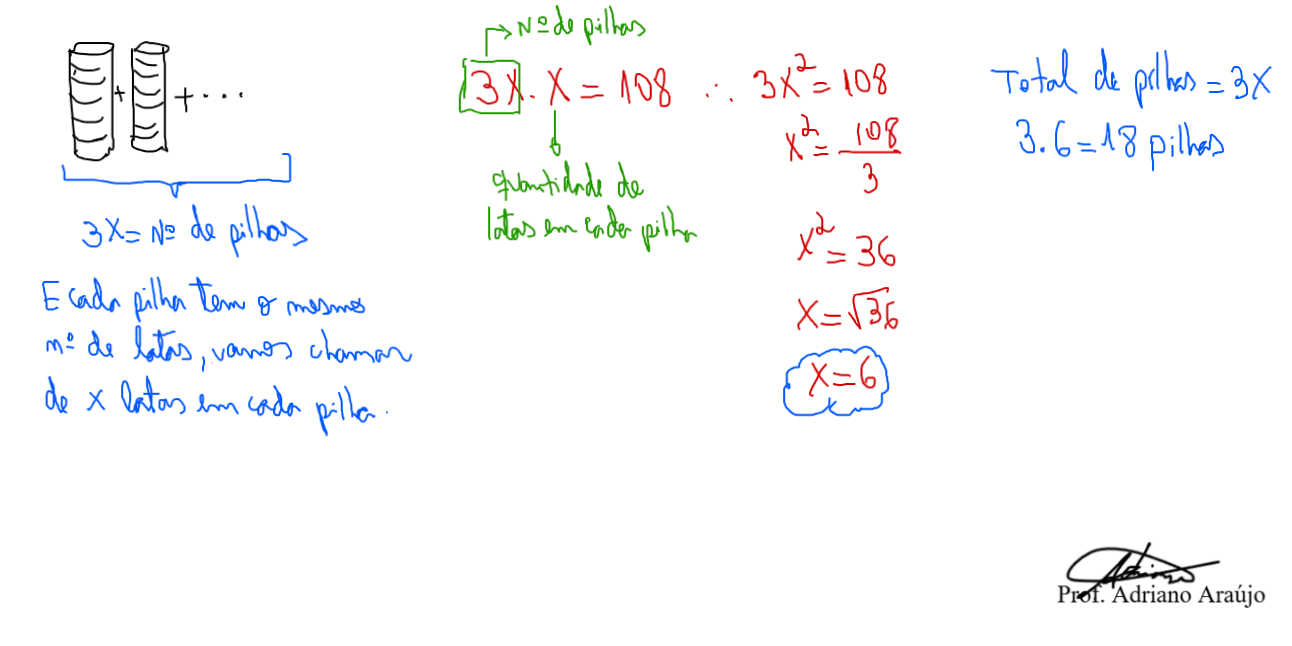 + + ...
3x = Nº de pilhas
E cada pilha tem o mesmo
nº de latas, vamos chamar
de x latas em cada pilha.
Nº de pilhas
3x . x = 108 ∴ 3x² = 108
quantidade de
latas em cada pilha
x² = 108/3
x² = 36
x = √36
x = 6
Total de pilhas = 3x
3 . 6 = 18 pilhas
Prof. Adriano Araújo